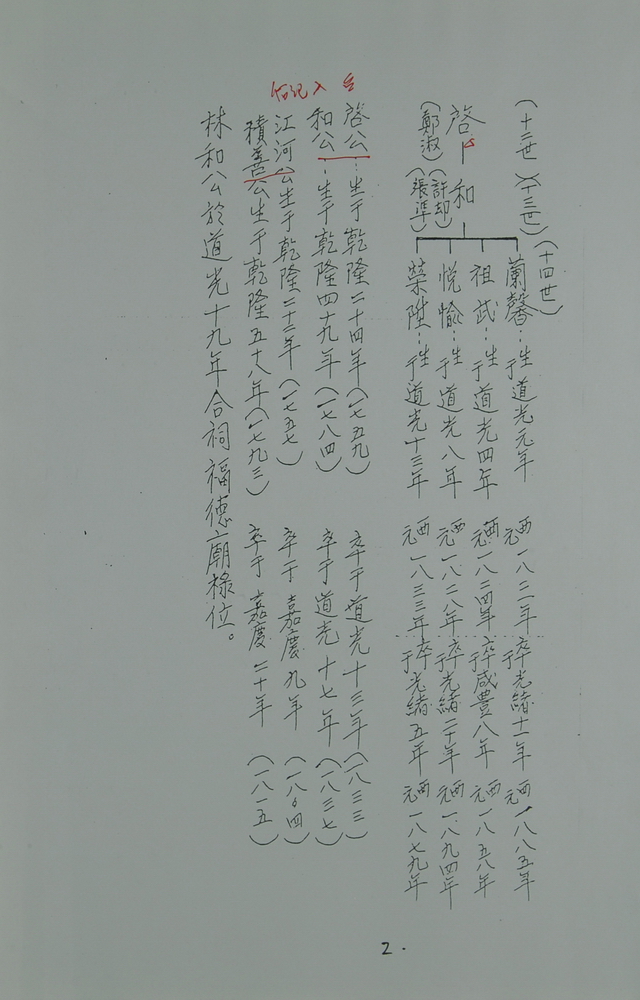 (十二世)(十三世)(十四世)
啓
(鄭淑)
和
(許却)
(張準)
蘭馨：生于道光元年 西元一八二一年 卒于光緒十一年 西元一八八五年
祖武：生于道光四年 西元一八二四年 卒于咸豊八年 西元一八五八年
悦愉：生于道光八年 西元一八二八年 卒于光緒二十年 西元一八九四年
榮陞：生于道光十三年 西元一八三三年 卒于光緒五年 西元一八七九年
啓公：生于乾隆二十四年(一七五九) 卒于道光十三年(一八三三)
和公：生于乾隆四十九年(一七八四) 卒于道光十七年(一八三七)
江河公生于乾隆二十二年(一七五七) 卒于嘉慶九年(一八〇四)
積善公生于乾隆五十八年(一七九三) 卒于嘉慶二十年(一八一五)
林和公於道光十九年合祠福德廟祿位。
2.